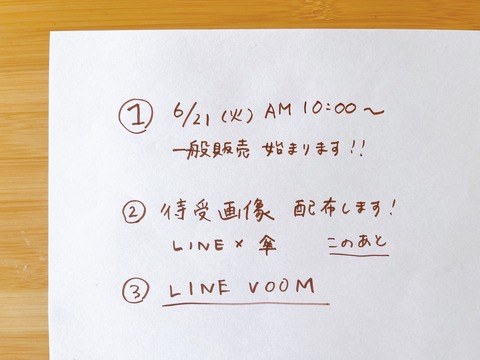 ① 6/21（火）AM 10:00〜
一般販売 始まります!!
② 待受画像 配布します!
LINE × 傘 このあと
③ LINE VOOM